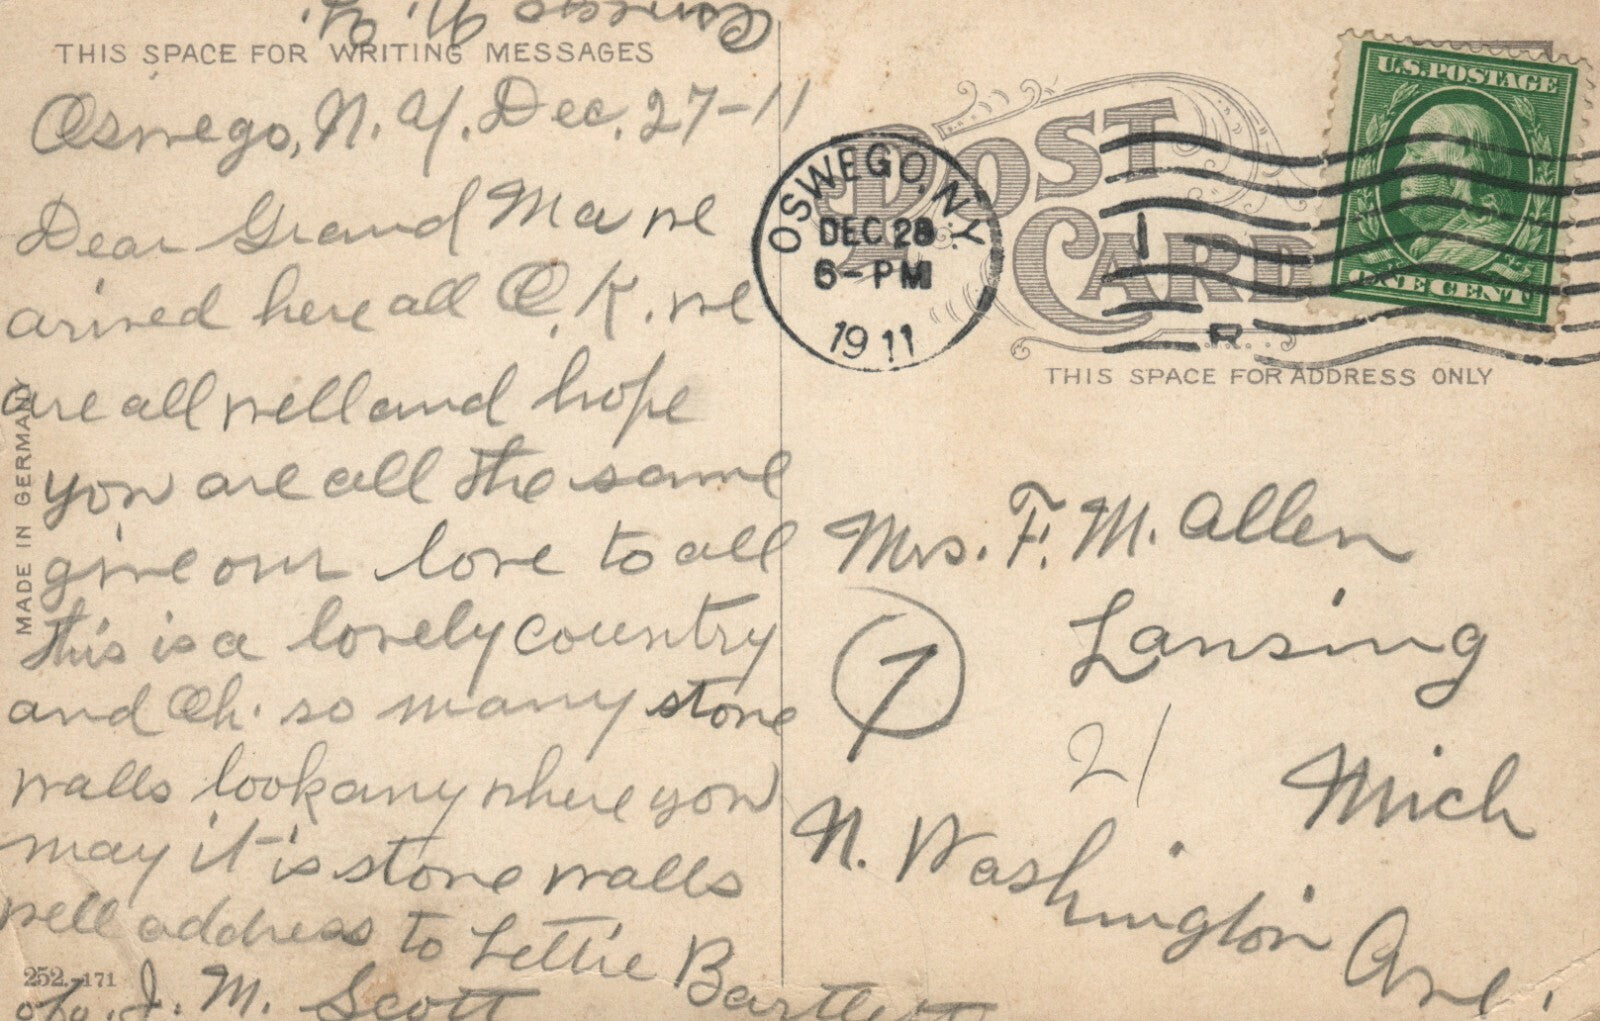 THIS SPACE FOR WRITING MESSAGES
Oswego, N. Y. Dec. 27-11
Dear Grand Ma we
arived here all O.K. we
are all well and hope
you are all the same
give our love to all
this is a lovely country
and Oh. so many stone
walls look any where you
may it is stone walls
well address to Lettie Bartlett
c/o. J. M. Scott
Oswego N. Y.
MADE IN GERMANY
252.-171
POST CARD
OSWEGO, N.Y.
DEC 28
6-PM
1911
1
R
U.S.POSTAGE
ONE CENT
THIS SPACE FOR ADDRESS ONLY
Mrs. F. M. Allen
Lansing
7
21
Mich
N. Washington Ave.